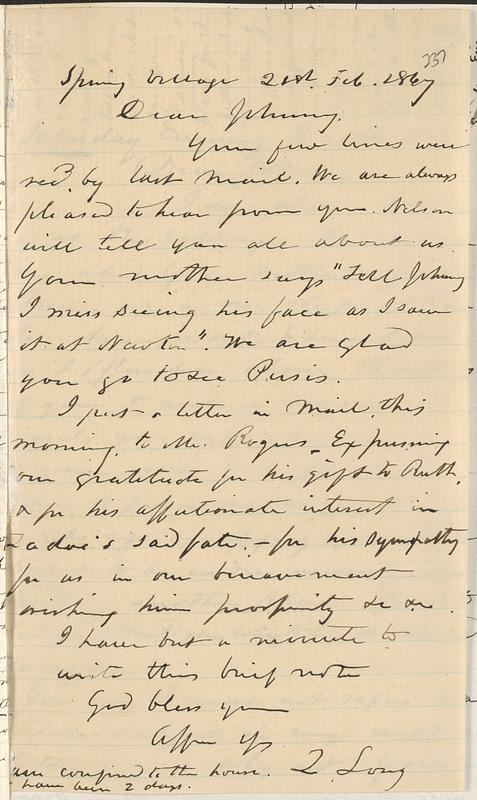 237
Spring Village 21st. Feb. 1867
Dear Johnny.
Your few lines were
recd. by last mail. We are always
pleased to hear from you. Nelson
will tell you all about us.
Your mother says "Tell Johnny
I miss seeing his face as I saw
it at Newton". We are glad
you go to see Persis.
I put a letter in mail, this
morning, to Mr. Rogers, Expressing
our gratitude for his gift to Ruth,
& for his affectionate interest in
Zadoc's sad fate, - for his sympathy
for us in our bereavement
wishing him prosperity &c &c.
I have but a minute to
write this brief note
God bless you
Affn yrs
Z Long
am confined to the house.
have been 2 days.